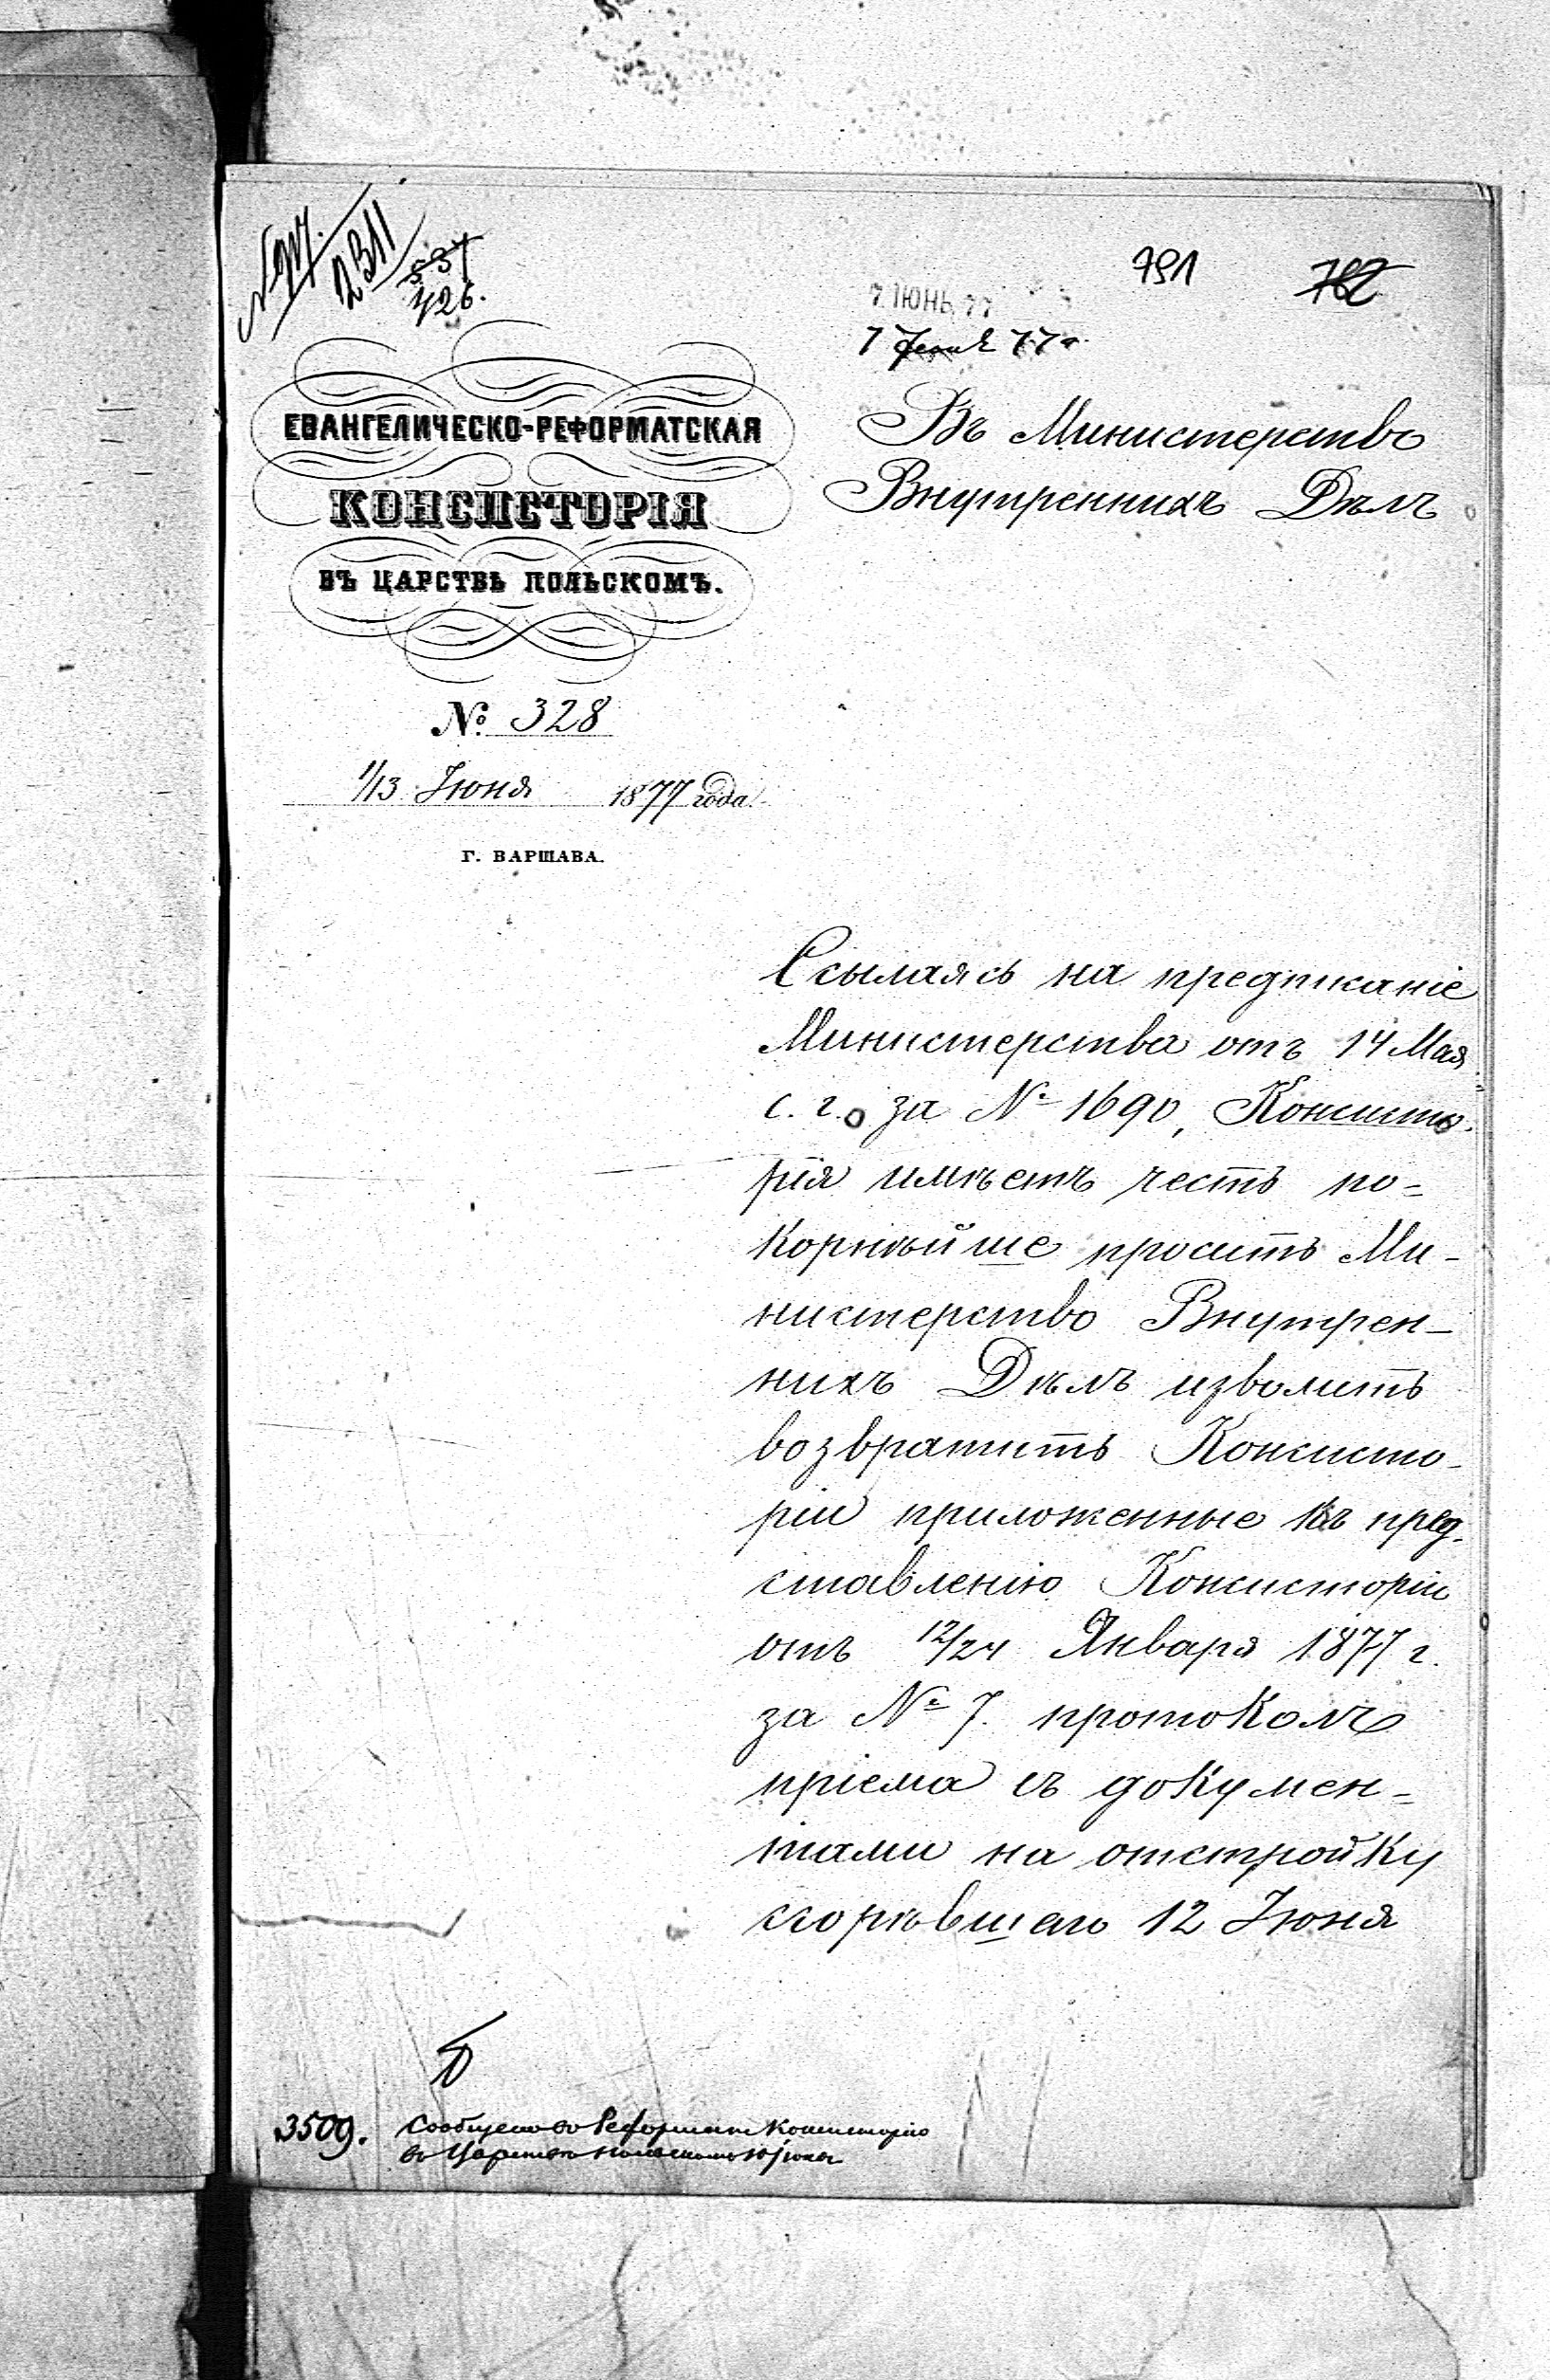 2311
537
426.
791
762
7 ІЮНЬ 77
ЕВАНГЕЛИЧЕСКО-РЕФОРМАТСКАЯ
КОНСИСТОРІЯ
ВЪ ЦАРСТВѢ ПОЛЬСКОМЪ.
№ 328
1/13 Іюня 1877 года
Г. ВАРШАВА.
Въ Министерство
Внутреннихъ Дѣлъ
Ссылаясь на предписаніе
Министерства отъ 14 Мая
с. г. за № 1690, Консисто-
рія имѣетъ честь по-
корнѣйше просить Ми-
нистерство Внутрен-
нихъ Дѣлъ изволить
возвратить Консисто-
ріи приложенные къ пред-
ставленію Консисторіи
отъ 12/24 Января 1877 г.
за № 7. протоколъ
пріема съ докумен-
тами на отстройку
сгорѣвшаго 12 Іюня
3509. Сообщено въ Реформат Консисторію
въ Царствѣ Польскомъ